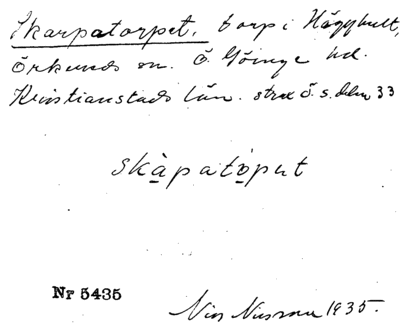 Skarpatorpet. torp i Hägghult,
Örkends sn. Ö. Göinge hd.
Kristianstads län. strax ö. s. delen 33
skàpatòput
Nr 5435
Nils 1935.